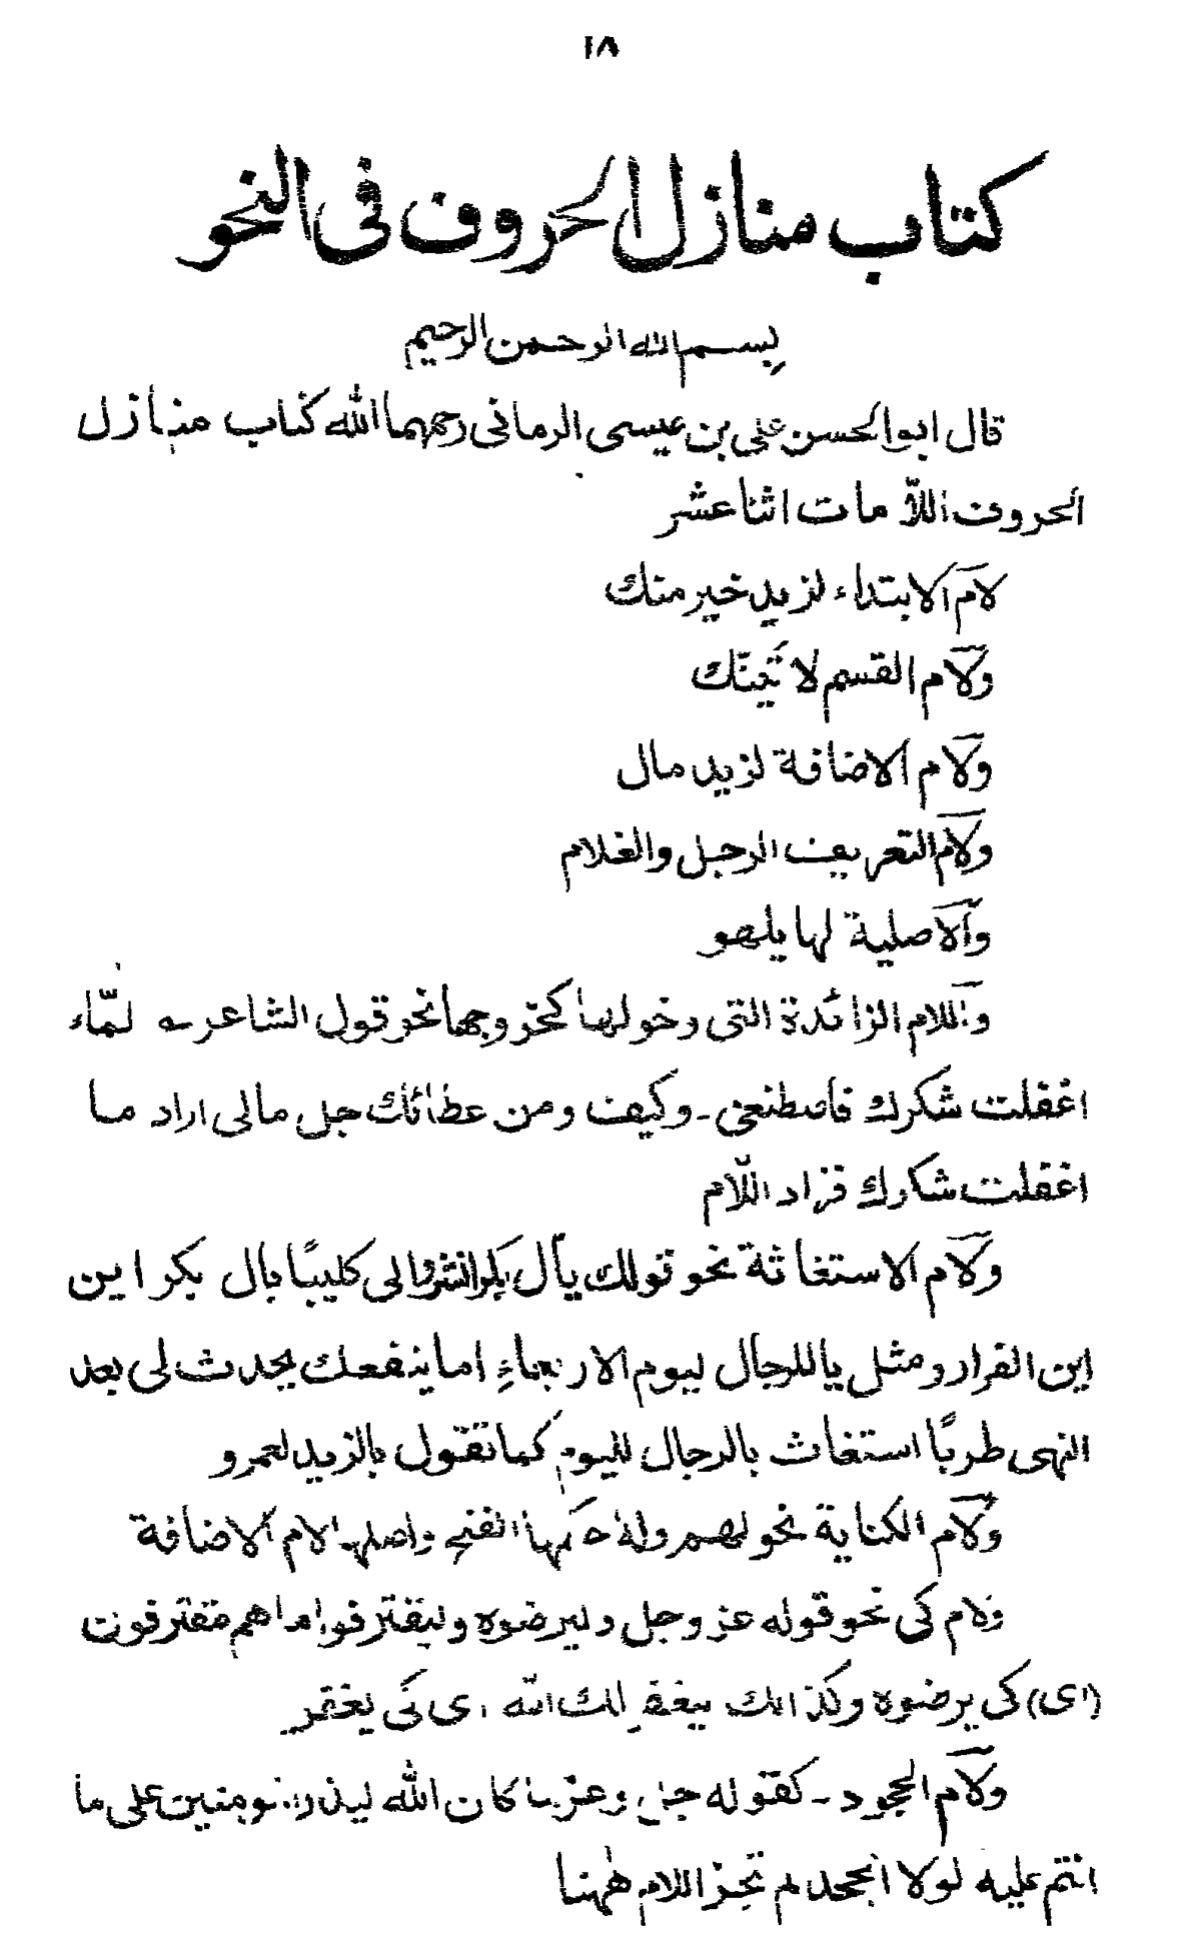 ١٨
كتاب منازل الحروف فى النحو
بسم الله الرحمن الرحيم
قال ابو الحسن على بن عيسى الرمانى رحمهما الله كتاب منازل
الحروف اللآمات اثنا عشر
لام الابتداء لزيد خير منك
ولام القسم لاتينّك
ولام الاضافة لزيد مال
ولام التعريف الرجل والغلام
والاصلية لها يلهو
واللام الزائدة التى دخولها كخروجها نحو قول الشاعر لمّاء
اغفلت شكرك فاصطنعنى ـ وكيف ومن عطائك جل مالى اراد ما
اغفلت شكرك فزاد اللّام
ولام الاستغاثة نحو قولك يآل بكر انشروا لى كليبًا يال بكر اين
اين الفرار ومثل يا للرجال ليوم الاربعاءِ اما ينفعك يحدث لى بعد
النهى طربًا استغاث بالرجال لليوم كما تقول يالزيد لعمرو
ولام الكناية نحو لهم وله حقها الفتح واصلها لام الاضافة
ولام كى نحو قوله عز وجل وليرضوه وليقترفوا ما هم مقترفون
(اى) كى يرضوه وكذالك ليغفر لك الله اى كَى يغفر
ولام الجحود ـ كقوله جل وعز ما كان الله ليذر المؤمنين على ما
انتم عليه لولا الجحد لم تجز اللام هٰهنا